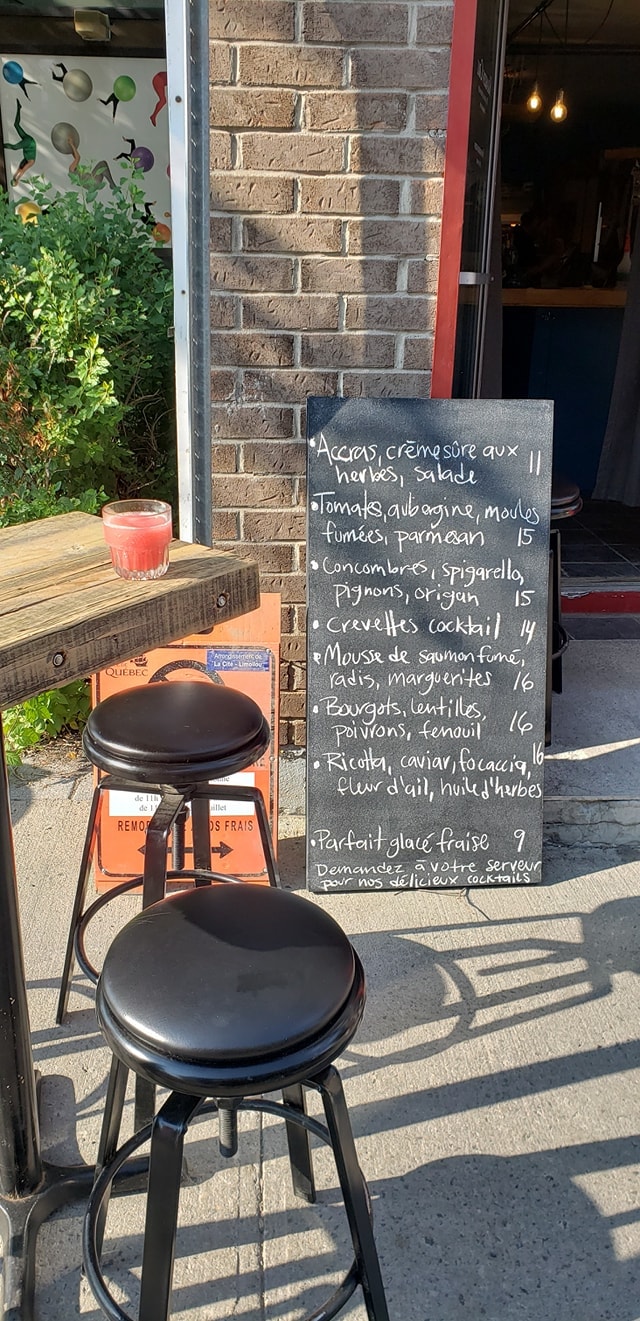 • Accras, crème sûre aux
herbes, salade 11
• Tomates, aubergine, moules
fumées, parmesan 15
• Concombres, spigarello,
pignons, origan 15
• crevettes cocktail 14
• Mousse de saumon fumé,
radis, marguerites 16
• Bourgots, lentilles,
poivrons, fenouil 16
• Ricotta, caviar, focaccia, 16
fleur d'ail, huile d'herbes
• Parfait glacé fraise 9
Demandez à votre serveur
pour nos délicieux cocktails
QUÉBEC
Arrondissement de
La Cité - Limoilou
de 11h
illet
OS FRAIS